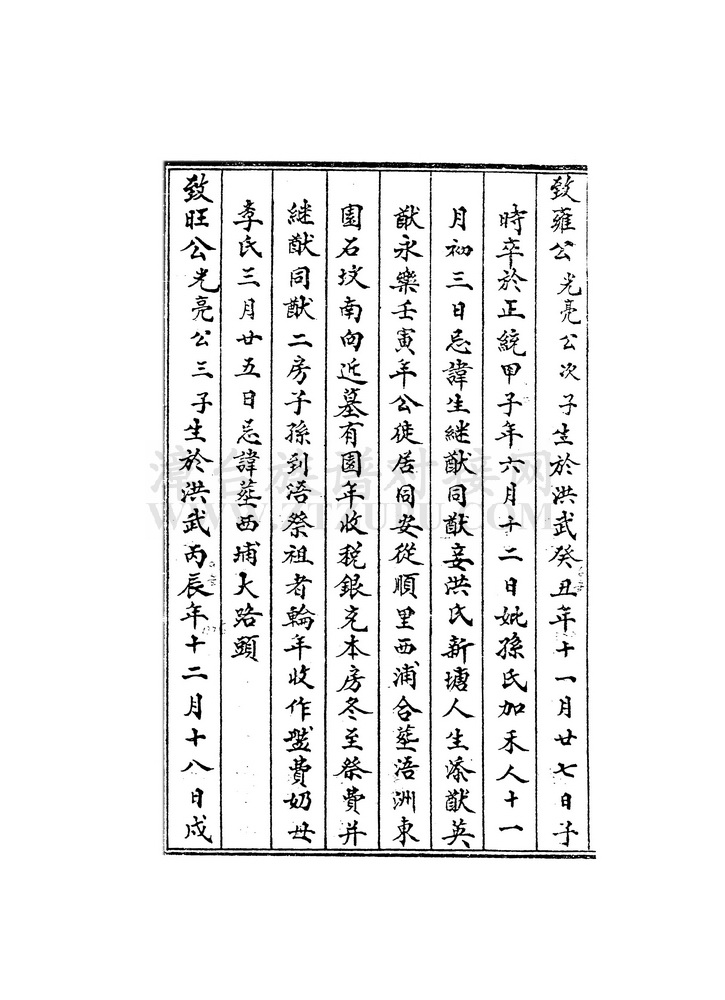 致雍公光亮公次子生於洪武癸丑年十一月廿七日子
時卒於正統甲子年六月十二日妣孫氏加禾人十一
月初三日忌諱生継猷同猷妾洪氏新塘人生添猷英
猷永樂壬寅年公徙居同安從順里西浦合塟浯洲東
園石坟南向近墓有園年收稅銀充本房冬至祭費并
継猷同猷二房子孫到浯祭祖者輪年收作盤費奶母
李氏三月廿五日忌諱塟西埔大路頭
致旺公光亮公三子生於洪武丙辰年十二月十八日戍
漳台族谱对接网
WWW.ZTZUPU.COM